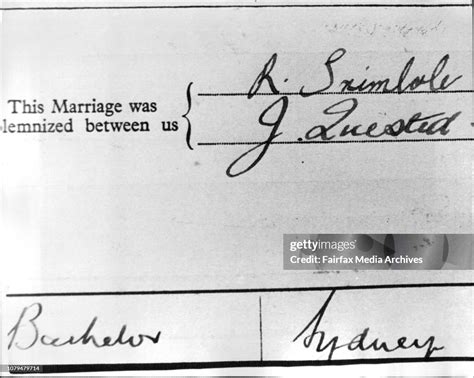 R. Trimbole
This Marriage was
olemnized between us
J. Quested
gettyimages
Credit: Fairfax Media Archives
Bachelor
Sydney
1079479714